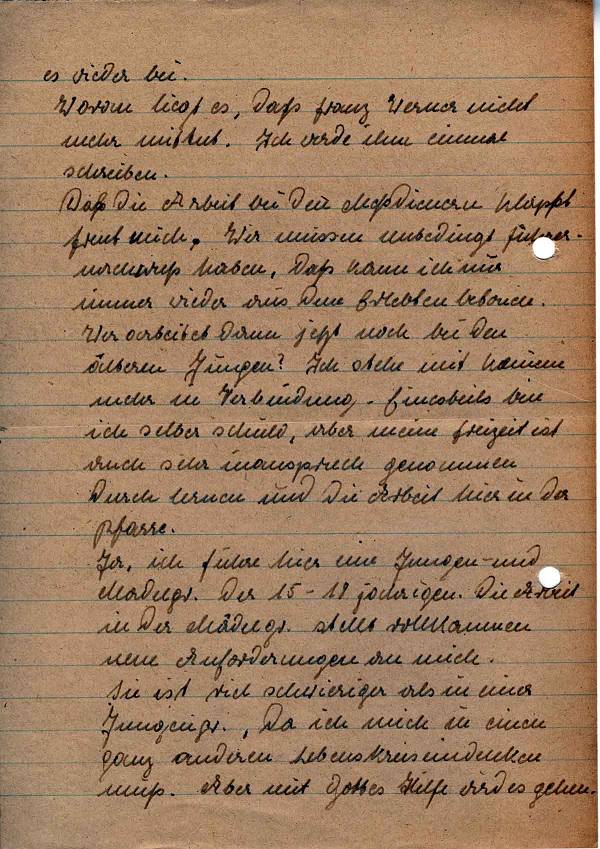 es wieder bei.
Woran liegt es, daß Franz Werner nicht
mehr mittut. Ich werde ihm einmal
schreiben.
Daß die Arbeit bei den Meßdienern klappt
freut mich. Wir müssen unbedingt Führer-
nachwuchs haben, daß kann ich nur
immer wieder aus dem Erlebten betonen.
Wer arbeitet denn jetzt noch bei den
älteren Jungen? Ich stehe mit keinem
mehr in Verbindung. Einesteils bin
ich selber schuld, aber meine Freizeit ist
auch sehr inanspruch genommen
durch lernen und die Arbeit hier in der
Pfarre.
Ja, ich führe hier eine Jungen- und
Mädelgr. der 15-18 jährigen. Die Arbeit
in der Mädelgr. stellt vollkommen
neue Anforderungen an mich.
Sie ist viel schwieriger als in einer
Jungengr., da ich mich in einen
ganz anderen Lebenskreis eindenken
muß. Aber mit Gottes Hilfe wird es gehen.